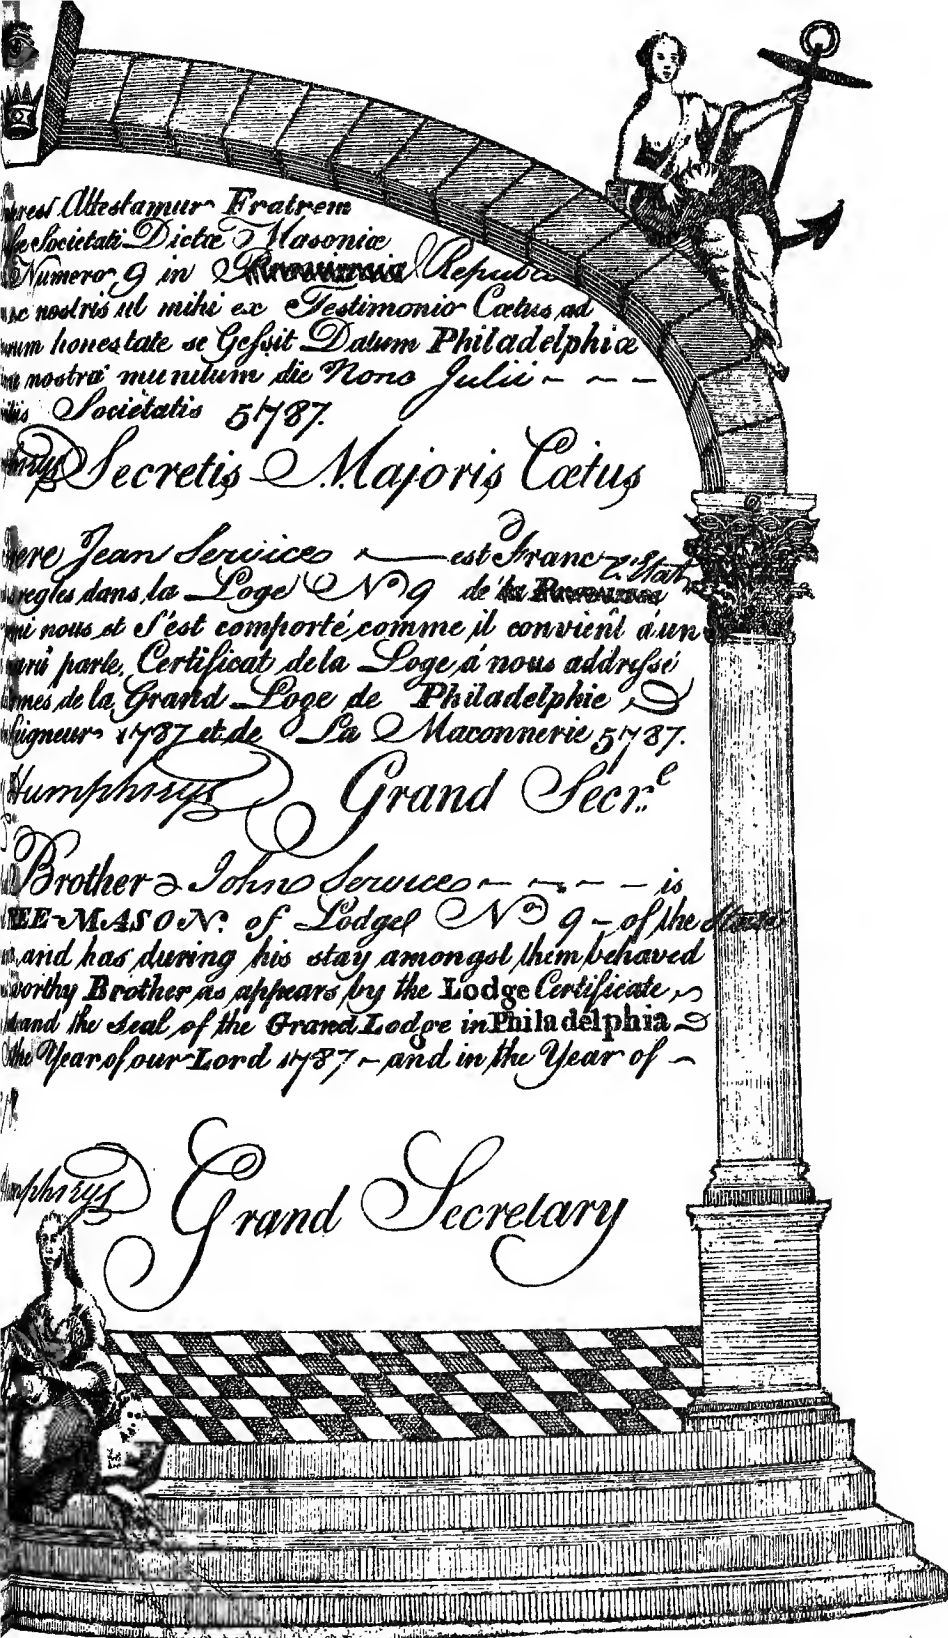 Attestamur Fratrem
Societati Dictæ Masoniæ
Numero 9 in Republ
nostris ut mihi ex Testimonio Cœtus ad
honestate se Gessit Datum Philadelphiæ
nostra munitum die Nono Julii - - -
Societatis 5787.
Secretis Majoris Cœtus
Jean Service est Franc
regles dans la Loge No 9 de l'Etat
nous et S'est comporté comme il convient á un
parle Certificat de la Loge á nous addressé
de la Grand Loge de Philadelphie
1787 et de La Maconnerie 5787.
Humphrys Grand Secr.e
Brother John Service - - - - is
EE-MASON. of Lodge No 9 - of the State
and has during his stay amongst them behaved
worthy Brother as appears by the Lodge Certificate
and the Seal of the Grand Lodge in Philadelphia
the Year of our Lord 1787 - and in the Year of -
mphrys Grand Secretary